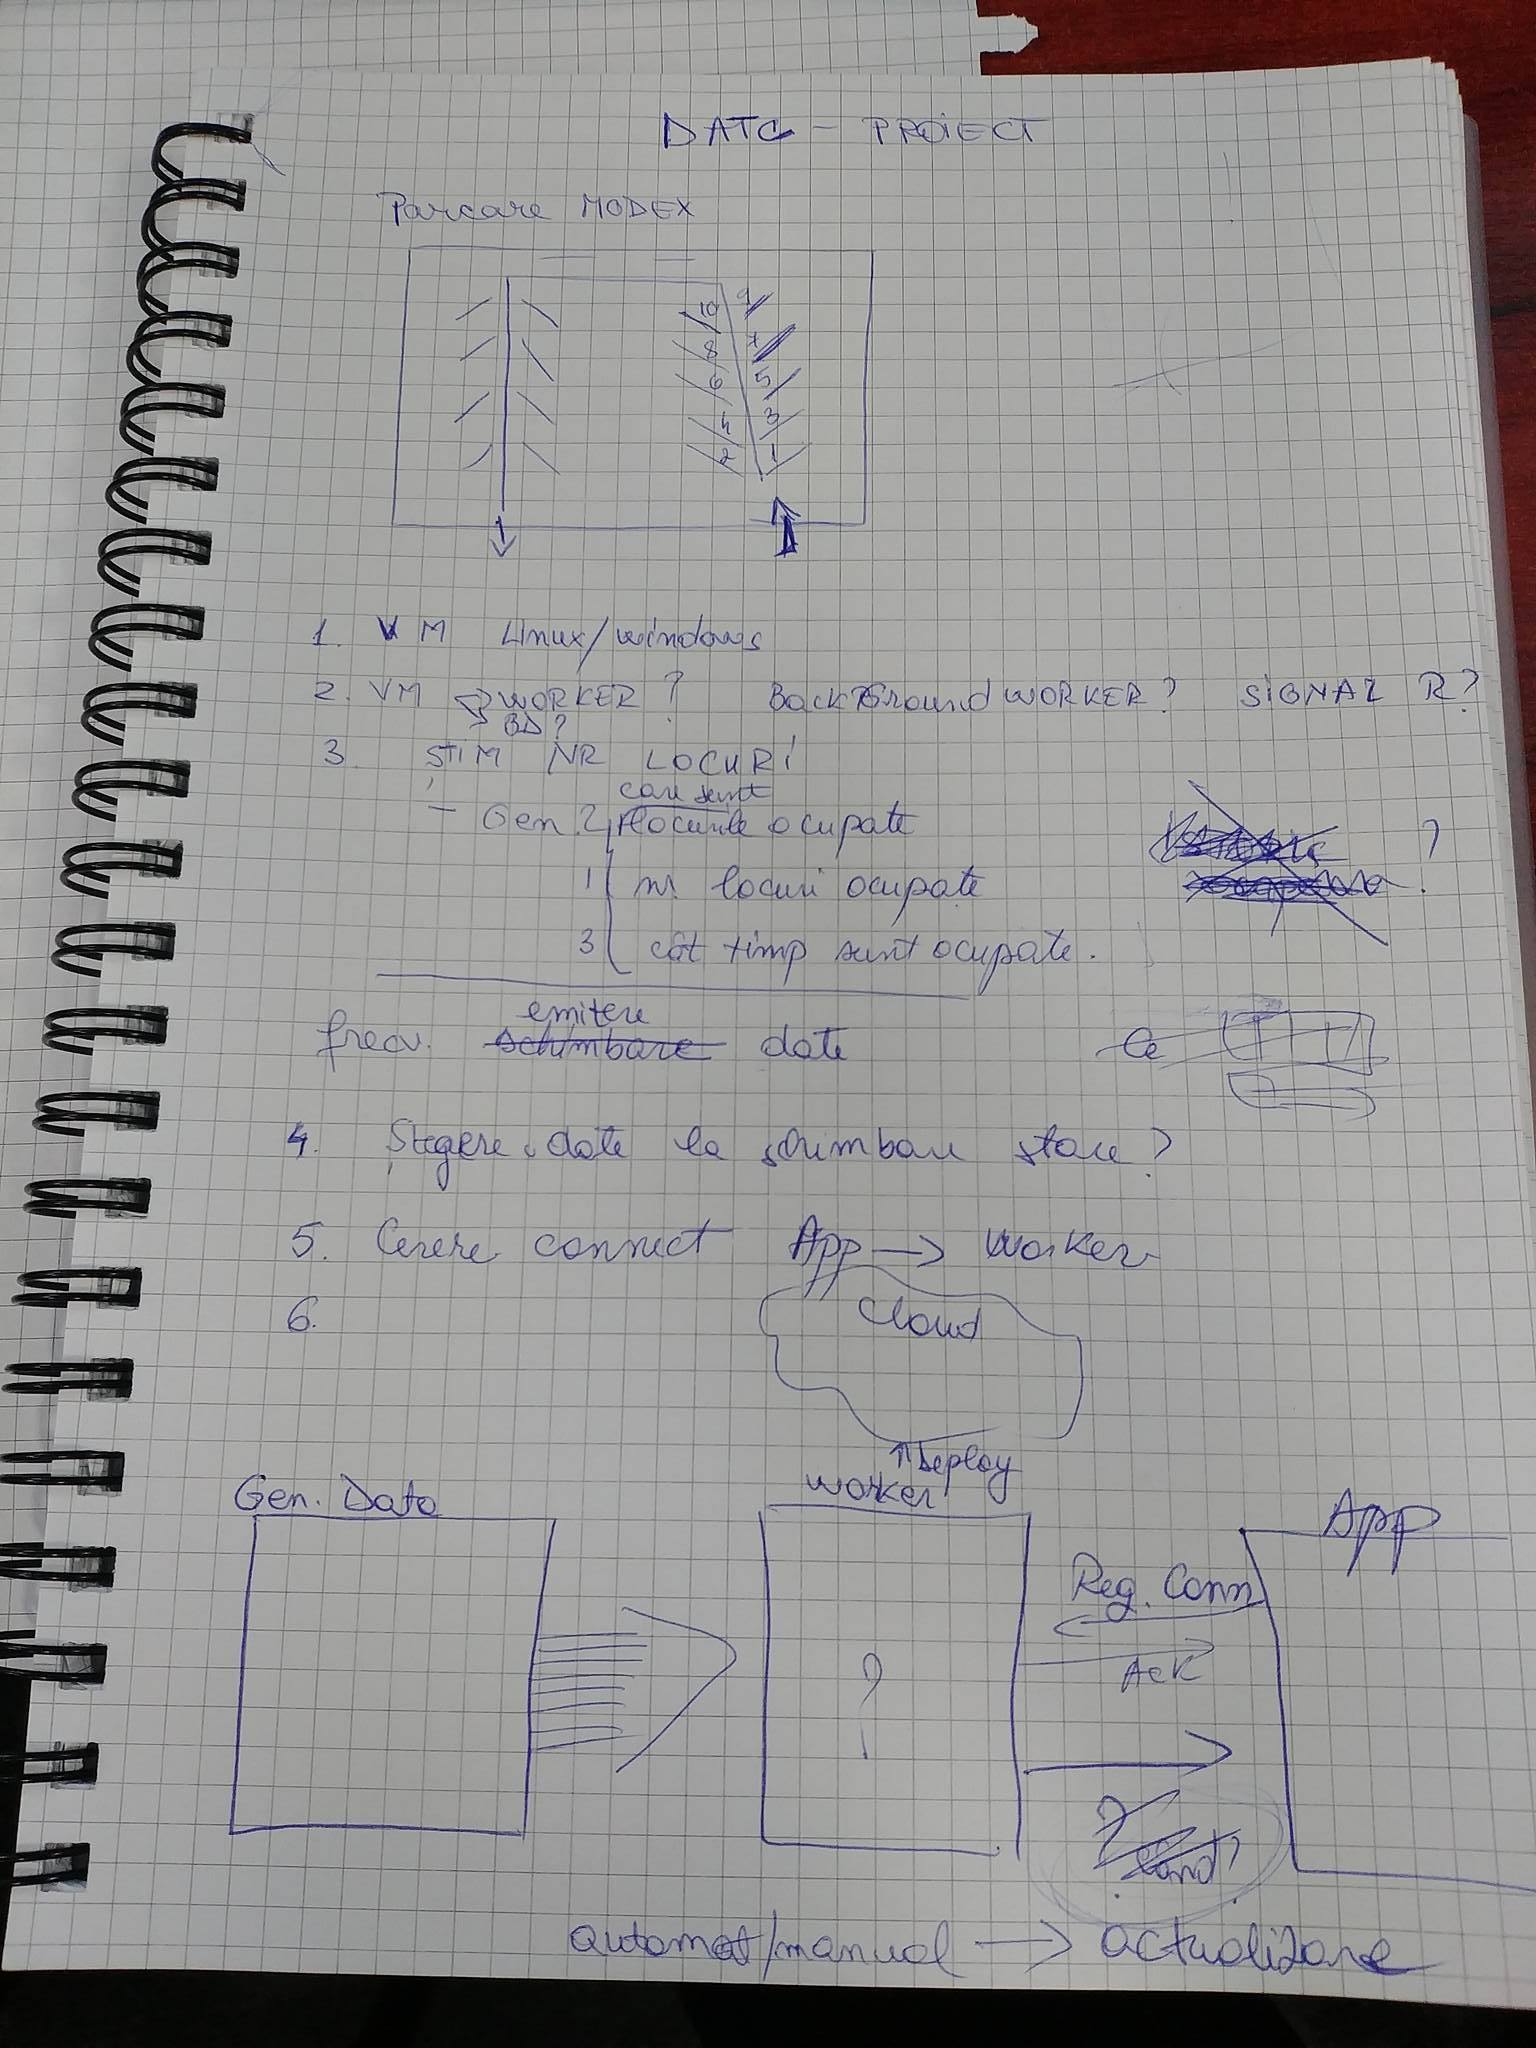 DATC - PROIECT
Parcare MODEX
10 9
8 7
6 5
4 3
2 1
1. VM Linux/windows
2. VM WORKER? BackGround WORKER? SIGNAL R?
BD?
3. ȘTIM NR LOCURI
care sunt
- Gen. 2 locurile ocupate ?
1 nr locuri ocupate ?
3 cât timp sunt ocupate.
emitere
frecv. schimbare date
Ce
4. Ștergere date la schimbare stare?
5. Cerere connect App → Worker
6. Cloud
↑ Deploy
Gen. Data worker App
Reg. Conn
? Ack
?
cand?
automat/manual → actualizare